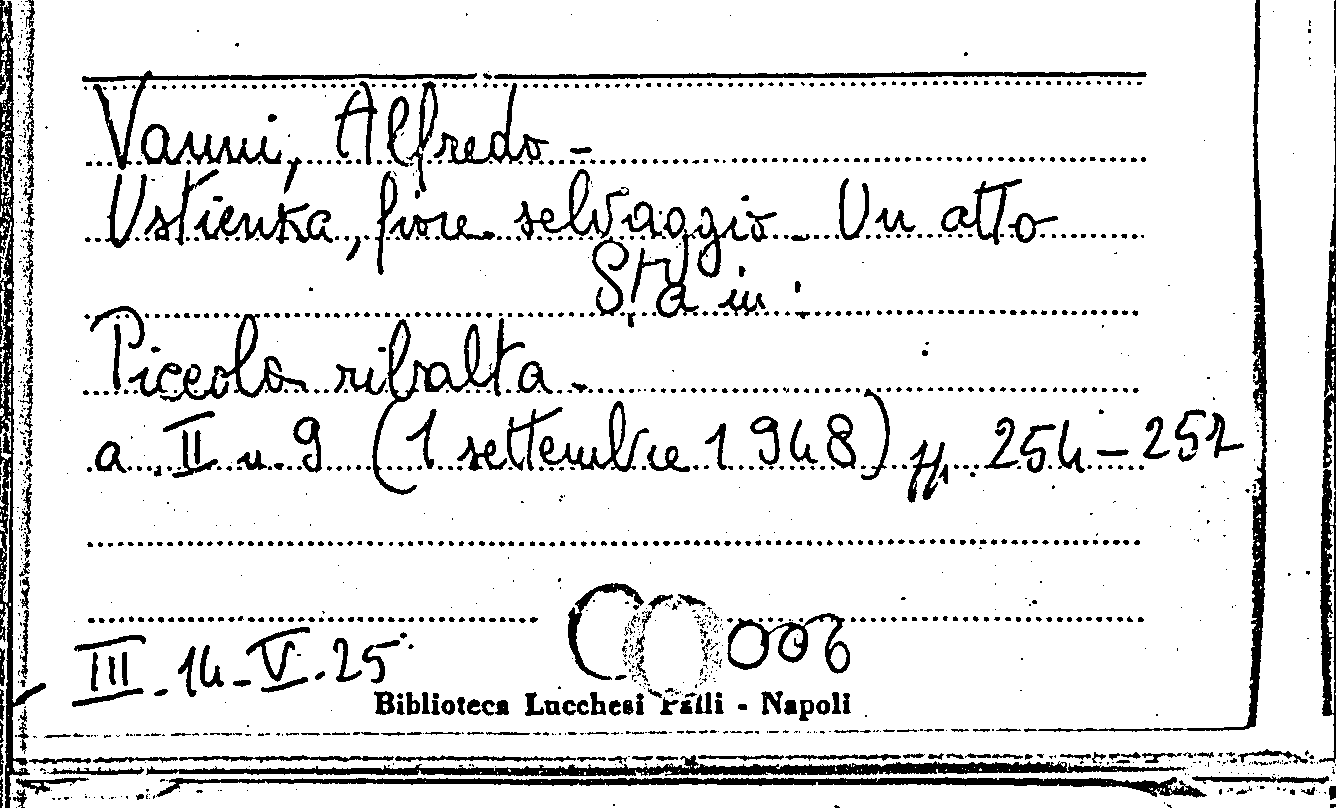 Vanni, Alfredo -
Ustienka, fiore selvaggio - Un atto
Sta in :
Piccola ribalta -
a. II n. 9 (1 settembre 1948) pp. 254-257
III.14-V.25
006
Biblioteca Lucchesi Palli - Napoli